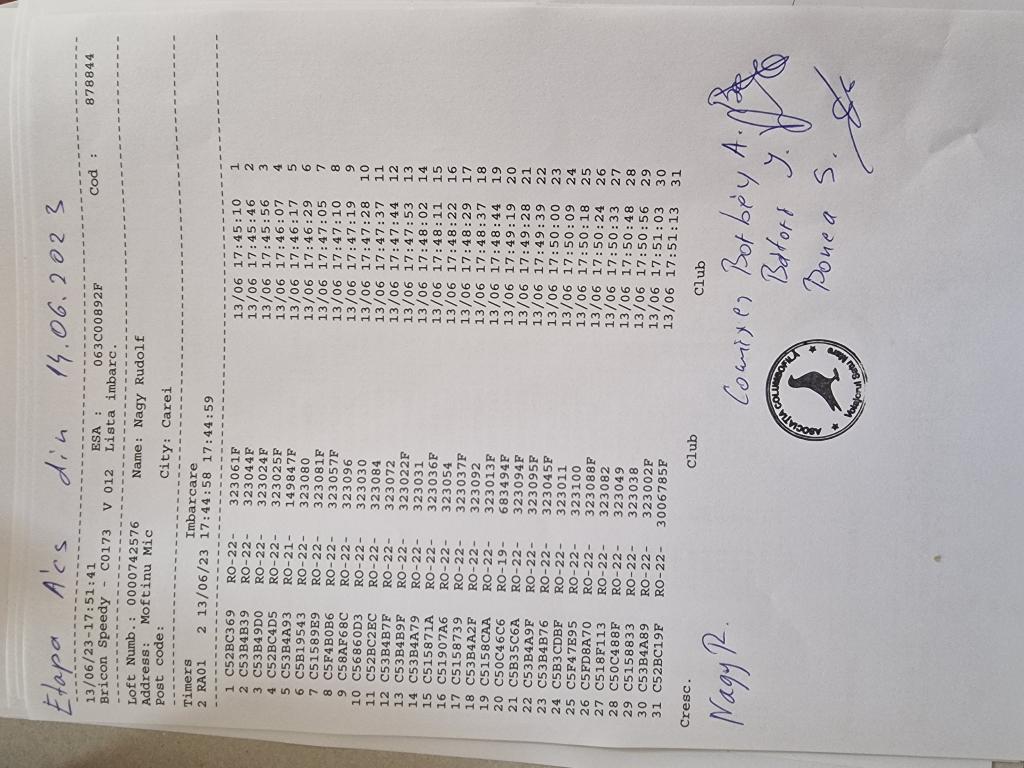 Etapa Acs din 14.06.2023
13/06/23-17:51:41 ESA : 063C00892F Cod : 878844
Bricon Speedy - C0173 V 012 Lista imbarc.
Loft Numb.: 0000742576 Name: Nagy Rudolf
Address: Moftinu Mic City: Carei
Post code:
Timers Imbarcare
2 RA01 2 13/06/23 17:44:58 17:44:59
1 C52BC369 RO-22- 323061F 13/06 17:45:10 1
2 C53B4B39 RO-22- 323044F 13/06 17:45:46 2
3 C53B49D0 RO-22- 323024F 13/06 17:45:56 3
4 C52BC4D5 RO-22- 323025F 13/06 17:46:07 4
5 C53B4A93 RO-21- 149847F 13/06 17:46:17 5
6 C5B19543 RO-22- 323080 13/06 17:46:29 6
7 C51589E9 RO-22- 323081F 13/06 17:47:05 7
8 C5F4B0B6 RO-22- 323057F 13/06 17:47:10 8
9 C58AF68C RO-22- 323096 13/06 17:47:19 9
10 C56860D3 RO-22- 323030 13/06 17:47:28 10
11 C52BC2EC RO-22- 323084 13/06 17:47:37 11
12 C53B4B7F RO-22- 323072 13/06 17:47:44 12
13 C53B4B9F RO-22- 323022F 13/06 17:47:53 13
14 C53B4A79 RO-22- 323031 13/06 17:48:02 14
15 C515871A RO-22- 323036F 13/06 17:48:11 15
16 C51907A6 RO-22- 323054 13/06 17:48:22 16
17 C5158739 RO-22- 323037F 13/06 17:48:29 17
18 C53B4A2F RO-22- 323092 13/06 17:48:37 18
19 C5158CAA RO-22- 323013F 13/06 17:48:44 19
20 C50C46C6 RO-19- 683494F 13/06 17:49:19 20
21 C5B35C6A RO-22- 323094F 13/06 17:49:28 21
22 C53B4A9F RO-22- 323095F 13/06 17:49:39 22
23 C53B4B76 RO-22- 323045F 13/06 17:50:00 23
24 C5B3CDBF RO-22- 323011 13/06 17:50:09 24
25 C5F47E95 RO-22- 323100 13/06 17:50:18 25
26 C5FD8A70 RO-22- 323088F 13/06 17:50:24 26
27 C518F113 RO-22- 323082 13/06 17:50:33 27
28 C50C488F RO-22- 323049 13/06 17:50:48 28
29 C5158833 RO-22- 323038 13/06 17:50:56 29
30 C53B4A89 RO-22- 323002F 13/06 17:51:03 30
31 C52BC19F RO-22- 3006785F 13/06 17:51:13 31
Cresc. Club Club
Nagy R.
Borbély A.
Donea S.
ASOCIATIA COLUMBOFILA
Voiajorul Satu Mare